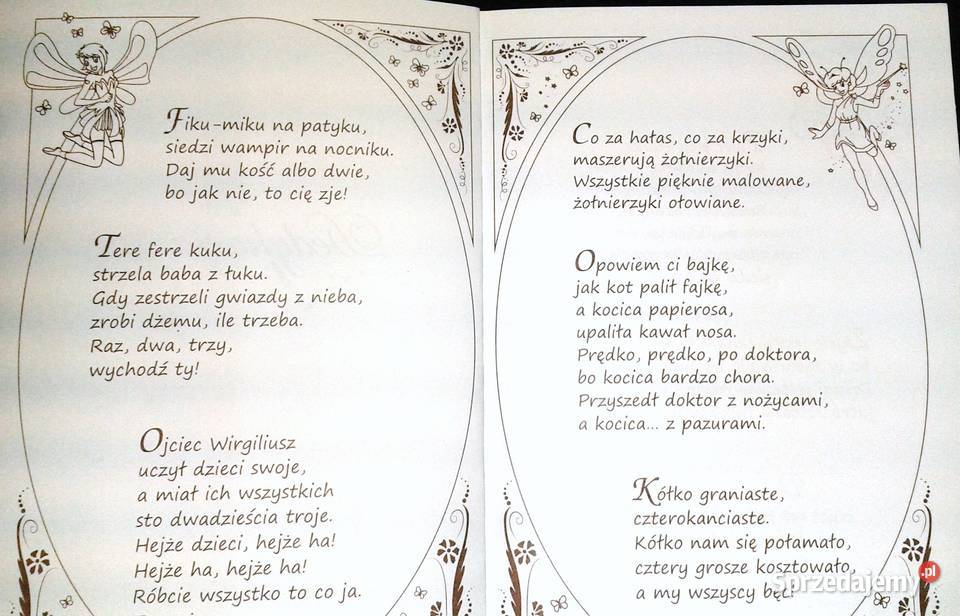 Fiku-miku na patyku,
siedzi wampir na nocniku.
Daj mu kość albo dwie,
bo jak nie, to cię zje!
Tere fere kuku,
strzela baba z łuku.
Gdy zestrzeli gwiazdy z nieba,
zrobi dżemu, ile trzeba.
Raz, dwa, trzy,
wychodź ty!
Ojciec Wirgiliusz
uczył dzieci swoje,
a miał ich wszystkich
sto dwadzieścia troje.
Hejże dzieci, hejże ha!
Hejże ha, hejże ha!
Róbcie wszystko to co ja.
Co za hałas, co za krzyki,
maszerują żołnierzyki.
Wszystkie pięknie malowane,
żołnierzyki ołowiane.
Opowiem ci bajkę,
jak kot palił fajkę,
a kocica papierosa,
upaliła kawał nosa.
Prędko, prędko, po doktora,
bo kocica bardzo chora.
Przyszedł doktor z nożycami,
a kocica... z pazurami.
Kółko graniaste,
czterokanciaste.
Kółko nam się połamało,
cztery grosze kosztowało,
a my wszyscy bęc!
Sprzedajemy.pl